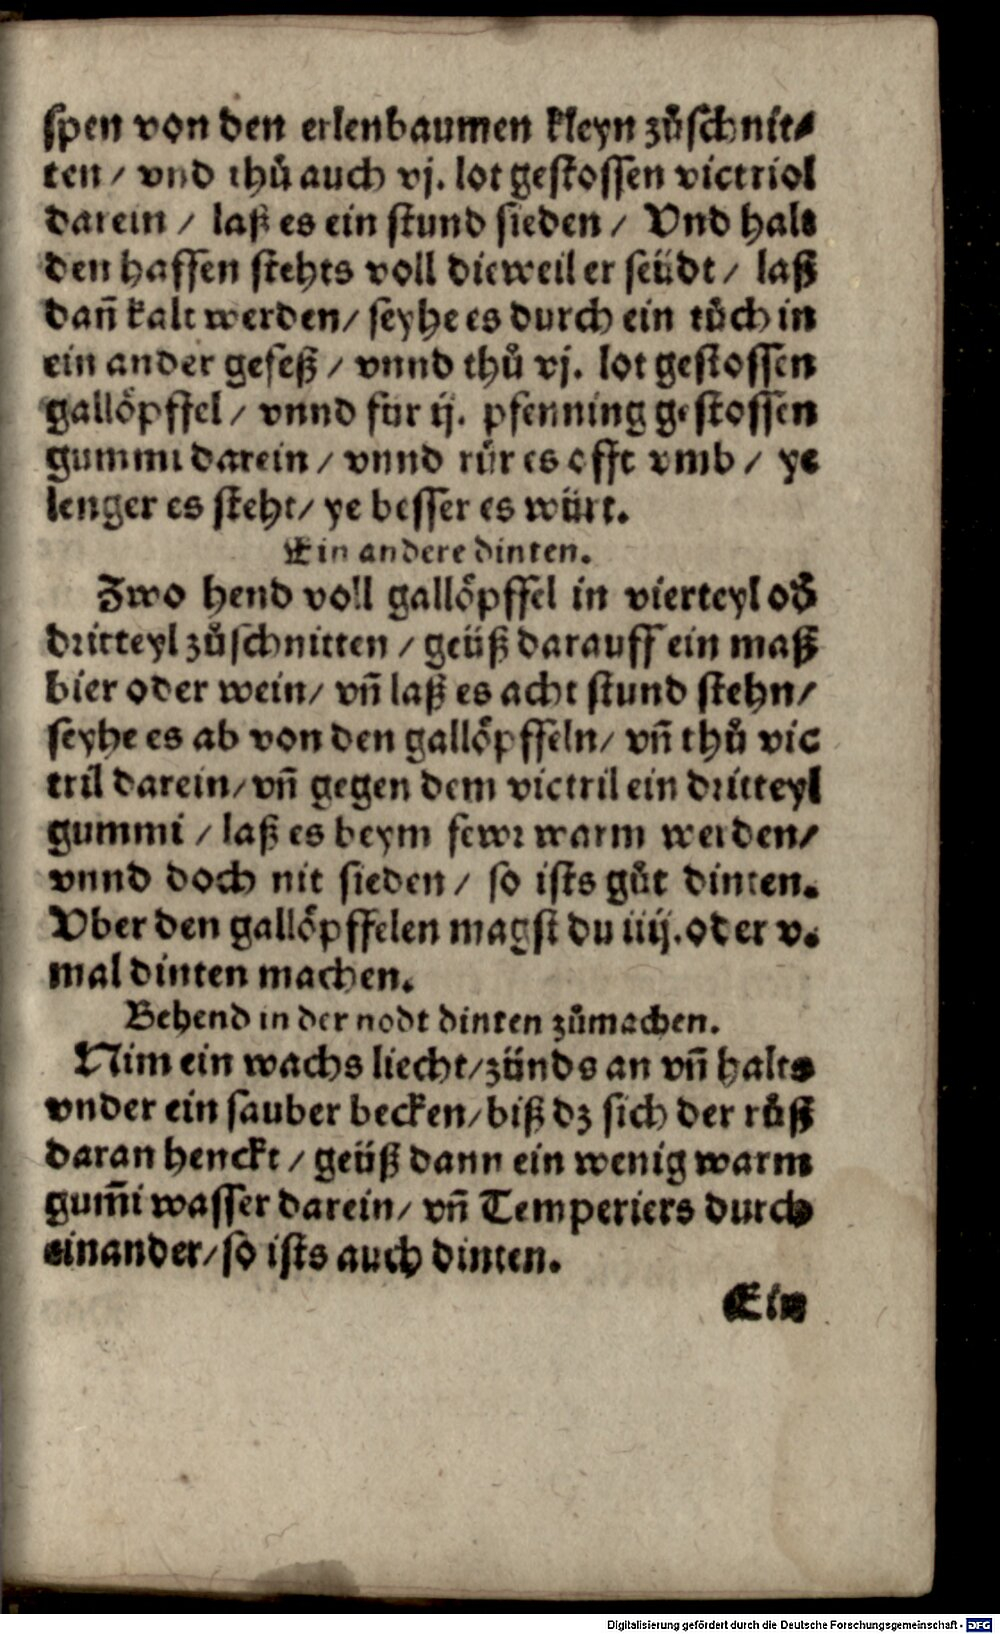 spen von den erlenbaumen kleyn zůschnit⸗
ten / vnd thů auch vj. lot gestossen victriol
darein / laß es ein stund sieden / Vnd halt
den haffen stehts voll dieweil er seüdt / laß
dañ kalt werden / seyhe es durch ein tůch in
ein ander geseß / vnnd thů vj. lot gestossen
gallöpffel / vnnd für ij. pfenning gestossen
gummi darein / vnnd rür es offt vmb / ye
lenger es steht / ye besser es würt.
Ein andere dinten.
Zwo hend voll gallöpffel in vierteyl oď
dritteyl zůschnitten / geüß darauff ein maß
bier oder wein / vñ laß es acht stund stehn /
seyhe es ab von den gallöpffeln / vñ thů vic
tril darein / vñ gegen dem victril ein dritteyl
gummi / laß es beym fewr warm werden /
vnnd doch nit sieden / so ists gůt dinten.
Vber den gallöpffelen magst du iiij. oder v.
mal dinten machen.
Behend in der nodt dinten zůmachen.
Nim ein wachs liecht / zünds an vñ halts
vnder ein sauber becken / biß dz sich der růß
daran henckt / geüß dann ein wenig warm
gum̃i wasser darein / vñ Temperiers durch
einander / so ists auch dinten.
Ein
Digitalisierung gefördert durch die Deutsche Forschungsgemeinschaft - DFG